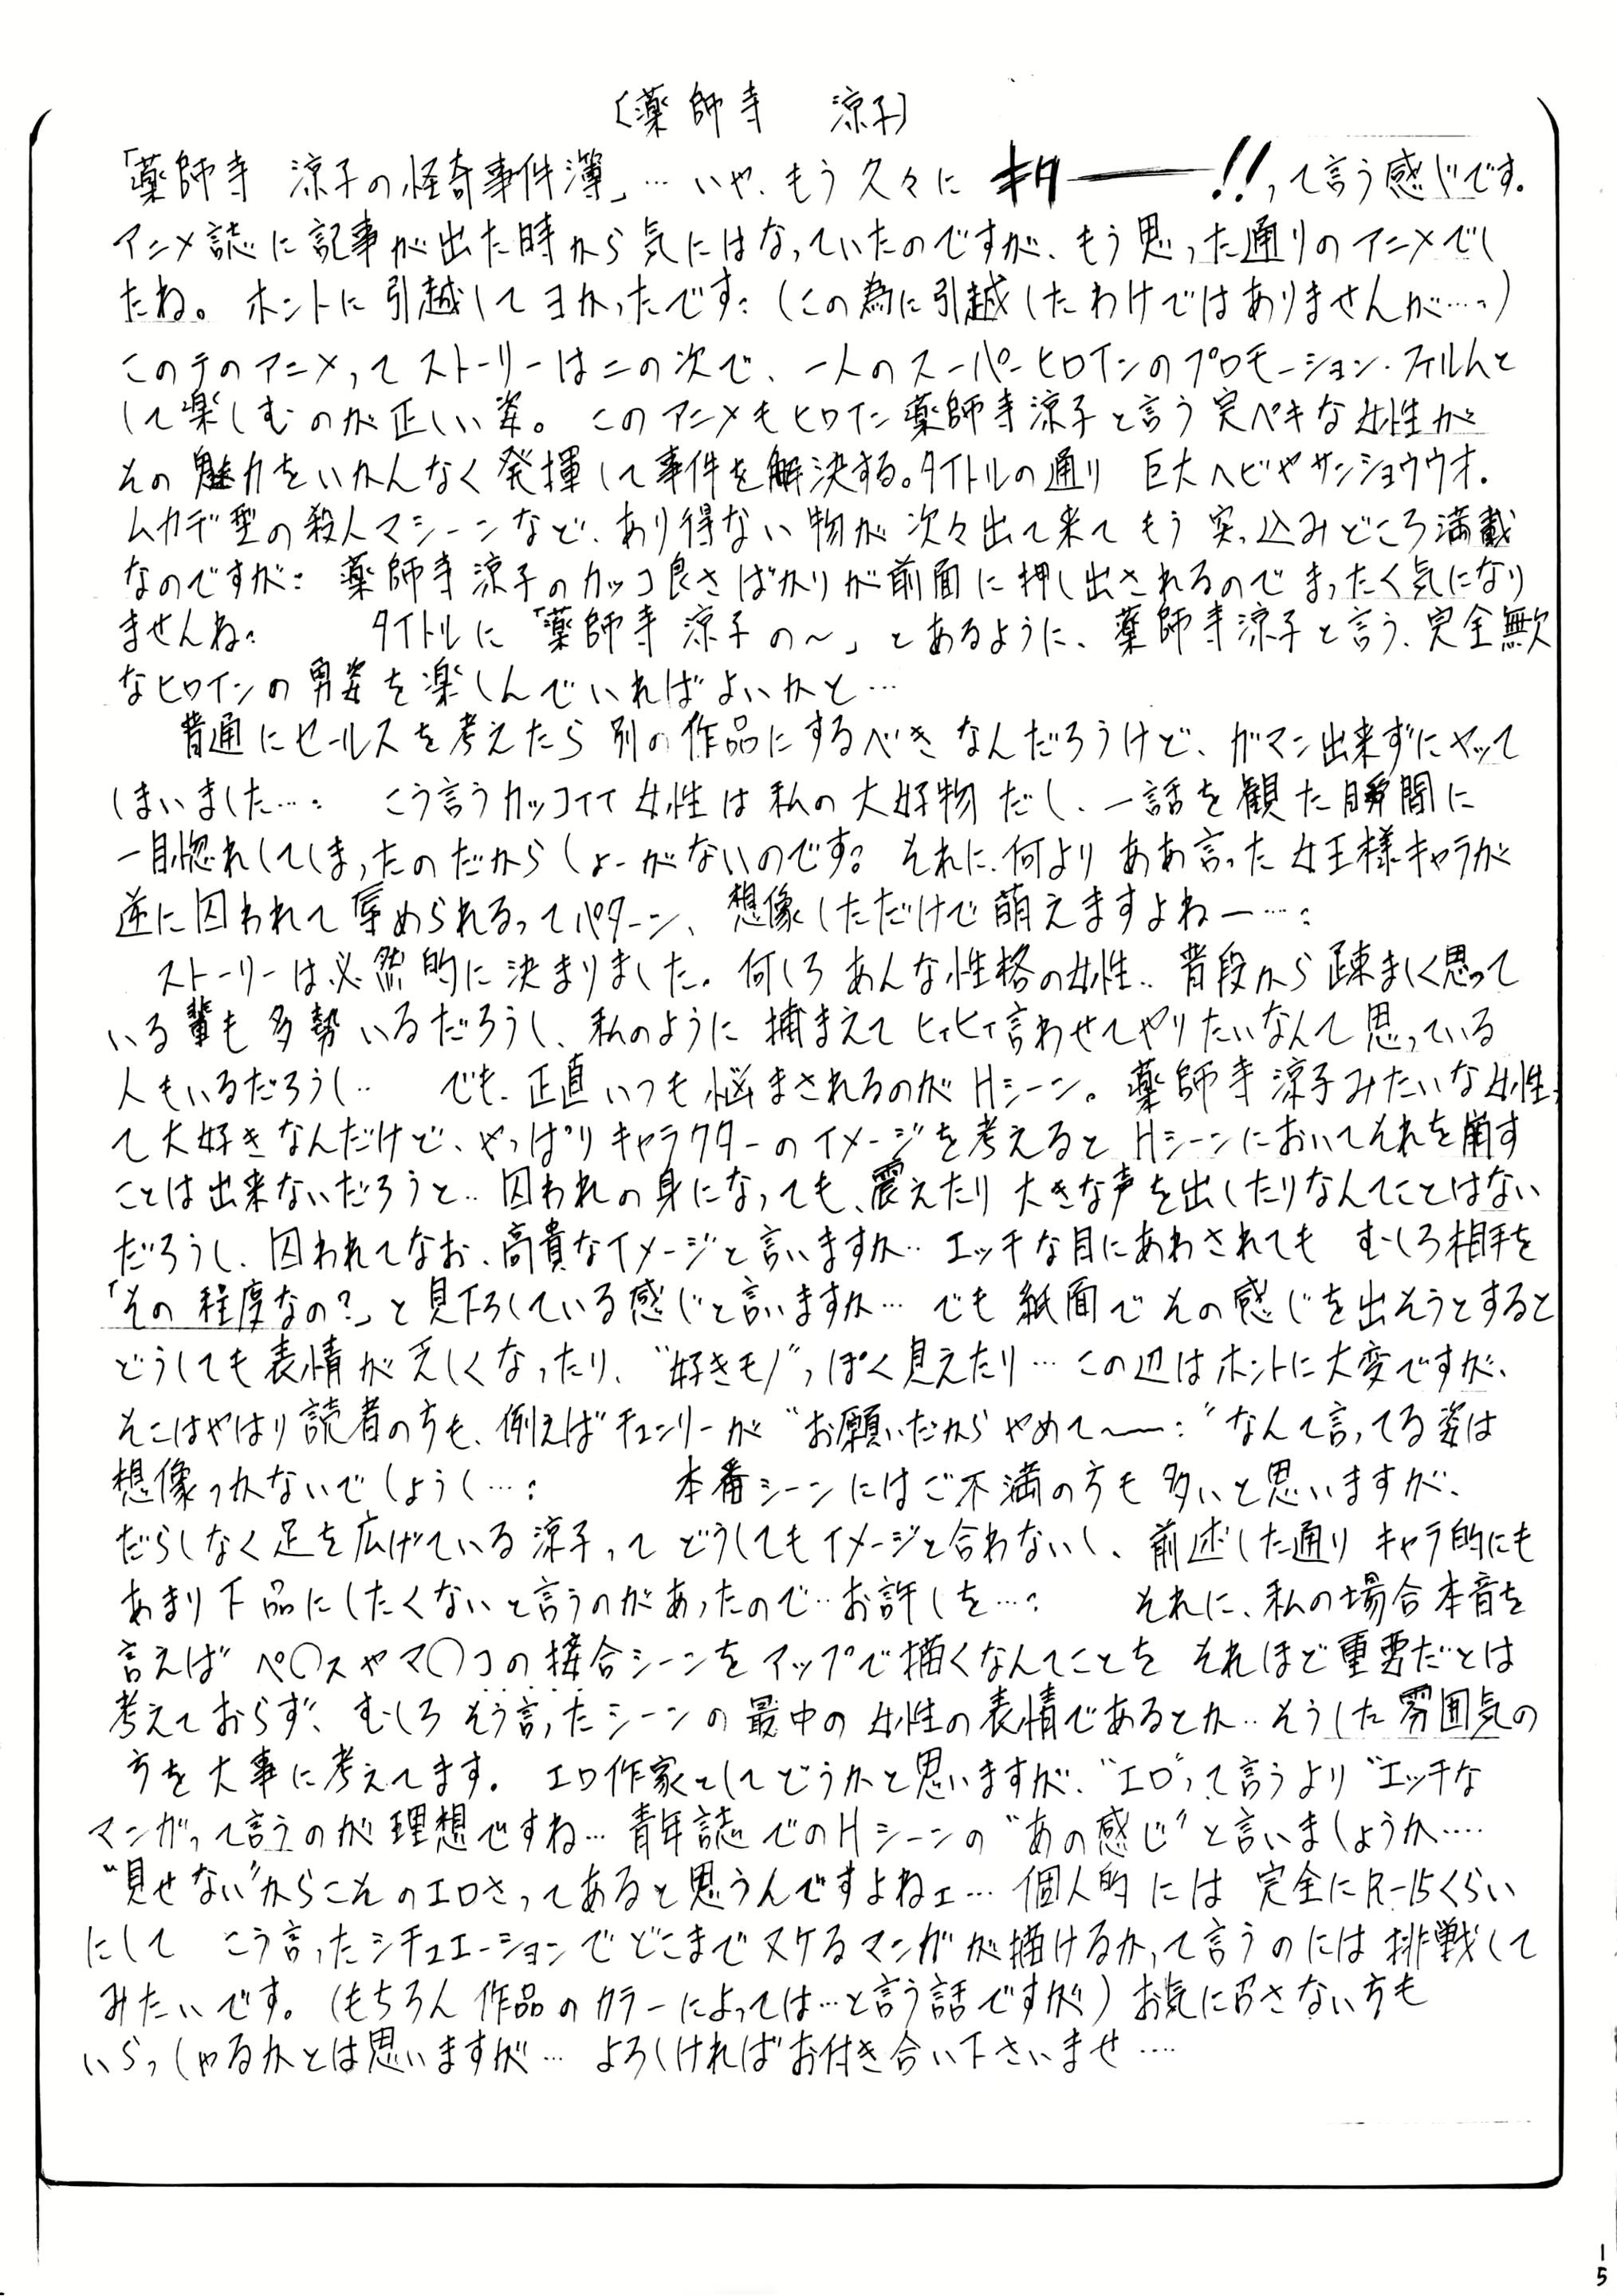 〔薬師寺 涼子〕
「薬師寺 涼子の怪奇事件簿」… いや、もう久々に キターー!!って言う感じです。
アニメ誌に記事が出た時から気にはなっていたのですが、もう思った通りのアニメでし
たね。 ホントに引越してヨかったです: (この為に引越したわけではありませんが…。)
このテのアニメって ストーリーは二の次で、一人のスーパーヒロインのプロモーション・フィルムと
して楽しむのが正しい姿。 このアニメもヒロイン薬師寺涼子と言う完ペキな女性が
その魅力をいかんなく発揮して事件を解決する。タイトルの通り 巨大ヘビやサンショウウオ、
ムカデ型の殺人マシーンなど、あり得ない物が次々出て来てもう突っ込みどころ満載
なのですが: 薬師寺涼子のカッコ良さばかりが前面に押し出されるのでまったく気になり
ませんね: タイトルに「薬師寺涼子の〜」とあるように、薬師寺涼子と言う、完全無欠
なヒロインの勇姿を楽しんでいればよいかと…
普通にセールスを考えたら別の作品にするべきなんだろうけど、ガマン出来ずにヤッて
しまいました…: こう言うカッコイイ女性は私の大好物だし、一話を観た瞬間に
一目惚れしてしまったのだからしょーがないのです: それに、何よりああ言った女王様キャラが
逆に囚われて辱められるってパターン、想像しただけで萌えますよねー…:
ストーリーは必然的に決まりました。何しろあんな性格の女性‥普段から疎ましく思って
いる輩も多勢いるだろうし、私のように捕まえてヒィヒィ言わせてやりたいなんて思っている
人もいるだろうし‥ でも、正直いつも悩まされるのがHシーン。薬師寺涼子みたいな女性っ
て大好きなんだけど、やっぱりキャラクターのイメージを考えるとHシーンにおいてそれを崩す
ことは出来ないだろうと‥囚われの身になっても、震えたり大きな声を出したりなんてことはない
だろうし、囚われてなお、高貴なイメージと言いますか‥エッチな目にあわされても むしろ相手を
「その程度なの?」と見下ろしている感じと言いますか… でも紙面でその感じを出そうとすると
どうしても表情が乏しくなったり、“好きモノ”っぽく見えたり… この辺はホントに大変ですが、
そこはやはり読者の方も、例えばチュンリーが“お願いだからやめて〜ー:”なんて言ってる姿は
想像つかないでしょうし…: 本番シーンにはご不満の方も多いと思いますが、
だらしなく足を広げている涼子ってどうしてもイメージと合わないし、前述した通りキャラ的にも
あまり下品にしたくないと言うのがあったので‥お許しを…: それに、私の場合本音を
言えばペ〇スやマ〇コの接合シーンをアップで描くなんてことを それほど重要だとは
考えておらず、むしろそう言ったシーンの最中の女性の表情であるとか‥そうした雰囲気の
方を大事に考えてます。 エロ作家としてどうかと思いますが、“エロ”って言うより“エッチな
マンガって言うのが理想ですね… 青年誌でのHシーンの“あの感じ”と言いましょうか‥‥
“見せない”からこそのエロさってあると思うんですよねェ… 個人的には 完全にR-15くらい
にして こう言ったシチュエーションでどこまでヌケるマンガが描けるかって言うのには挑戦して
みたいです。(もちろん作品のカラーによっては…と言う話ですが) お気に召さない方も
いらっしゃるかとは思いますが… よろしければお付き合い下さいませ‥‥
15